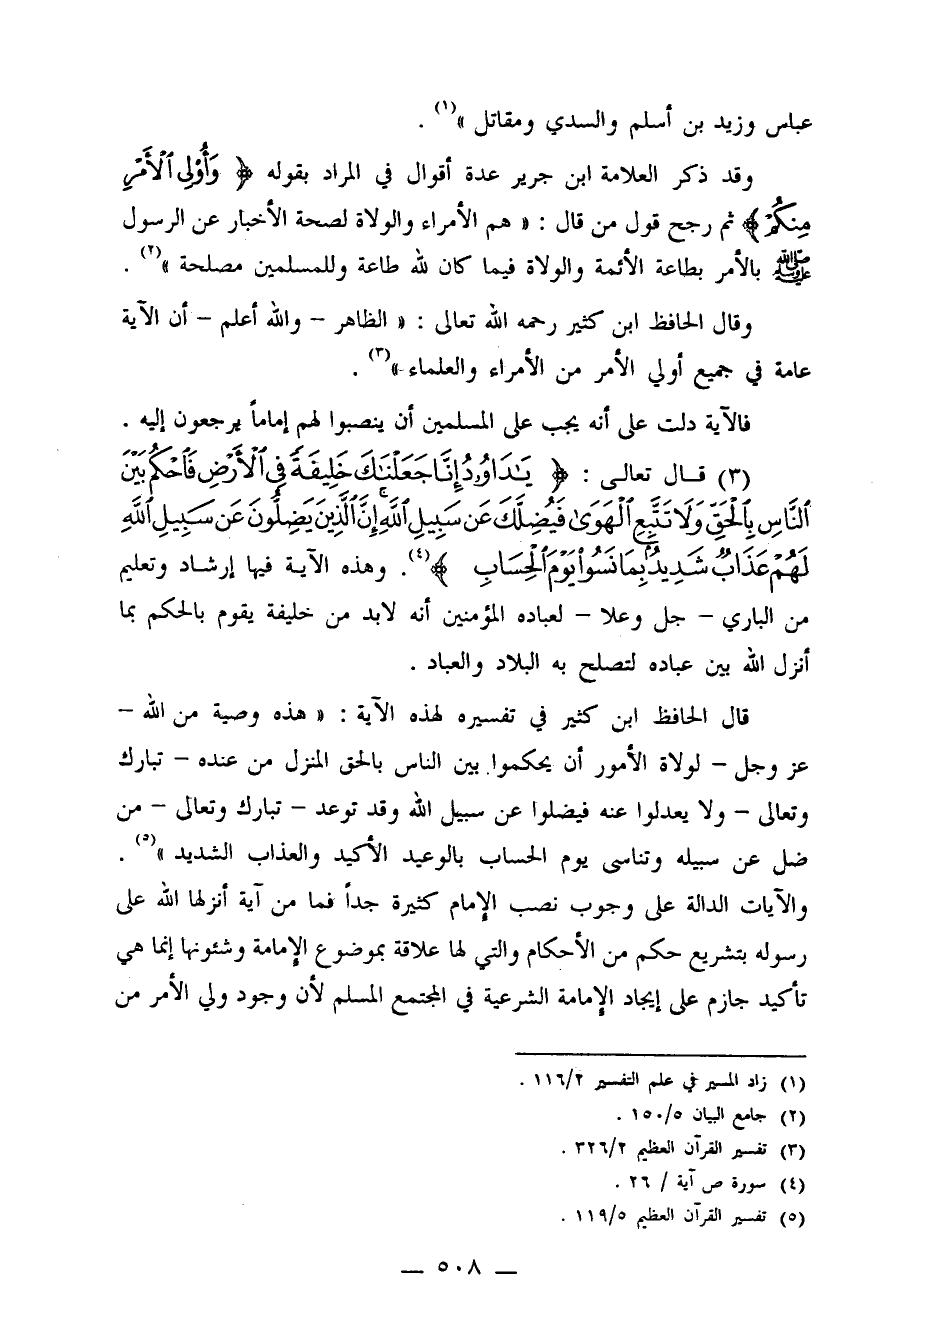 عباس وزيد بن أسلم والسدي ومقاتل »(١) .
وقد ذكر العلامة ابن جرير عدة أقوال في المراد بقوله ﴿ وَأُوْلِى ٱلْأَمْرِ
مِنكُمْ ﴾ ثم رجح قول من قال : « هم الأمراء والولاة لصحة الأخبار عن الرسول
ﷺ بالأمر بطاعة الأئمة والولاة فيما كان لله طاعة وللمسلمين مصلحة »(٢) .
وقال الحافظ ابن كثير رحمه الله تعالى : « الظاهر – والله أعلم – أن الآية
عامة في جميع أولي الأمر من الأمراء والعلماء »(٣) .
فالآية دلت على أنه يجب على المسلمين أن ينصبوا لهم إماماً يرجعون إليه .
(٣) قال تعالى : ﴿ يَٰدَاوُۥدُ إِنَّا جَعَلْنَٰكَ خَلِيفَةً فِى ٱلْأَرْضِ فَٱحْكُم بَيْنَ
ٱلنَّاسِ بِٱلْحَقِّ وَلَا تَتَّبِعِ ٱلْهَوَىٰ فَيُضِلَّكَ عَن سَبِيلِ ٱللَّهِ ۚ إِنَّ ٱلَّذِينَ يَضِلُّونَ عَن سَبِيلِ ٱللَّهِ
لَهُمْ عَذَابٌ شَدِيدٌۢ بِمَا نَسُوا۟ يَوْمَ ٱلْحِسَابِ ﴾(٤). وهذه الآية فيها إرشاد وتعليم
من الباري – جل وعلا – لعباده المؤمنين أنه لابد من خليفة يقوم بالحكم بما
أنزل الله بين عباده لتصلح به البلاد والعباد .
قال الحافظ ابن كثير في تفسيره لهذه الآية : « هذه وصية من الله –
عز وجل – لولاة الأمور أن يحكموا بين الناس بالحق المنزل من عنده – تبارك
وتعالى – ولا يعدلوا عنه فيضلوا عن سبيل الله وقد توعد – تبارك وتعالى – من
ضل عن سبيله وتناسى يوم الحساب بالوعيد الأكيد والعذاب الشديد »(٥) .
والآيات الدالة على وجوب نصب الإمام كثيرة جداً فما من آية أنزلها الله على
رسوله بتشريع حكم من الأحكام والتي لها علاقة بموضوع الإمامة وشئونها إنما هي
تأكيد جازم على إيجاد الإمامة الشرعية في المجتمع المسلم لأن وجود ولي الأمر من
(١) زاد المسير في علم التفسير ١١٦/٢ .
(٢) جامع البيان ١٥٠/٥ .
(٣) تفسير القرآن العظيم ٣٢٦/٢ .
(٤) سورة ص آية / ٢٦ .
(٥) تفسير القرآن العظيم ١١٩/٥ .
— ٥٠٨ —